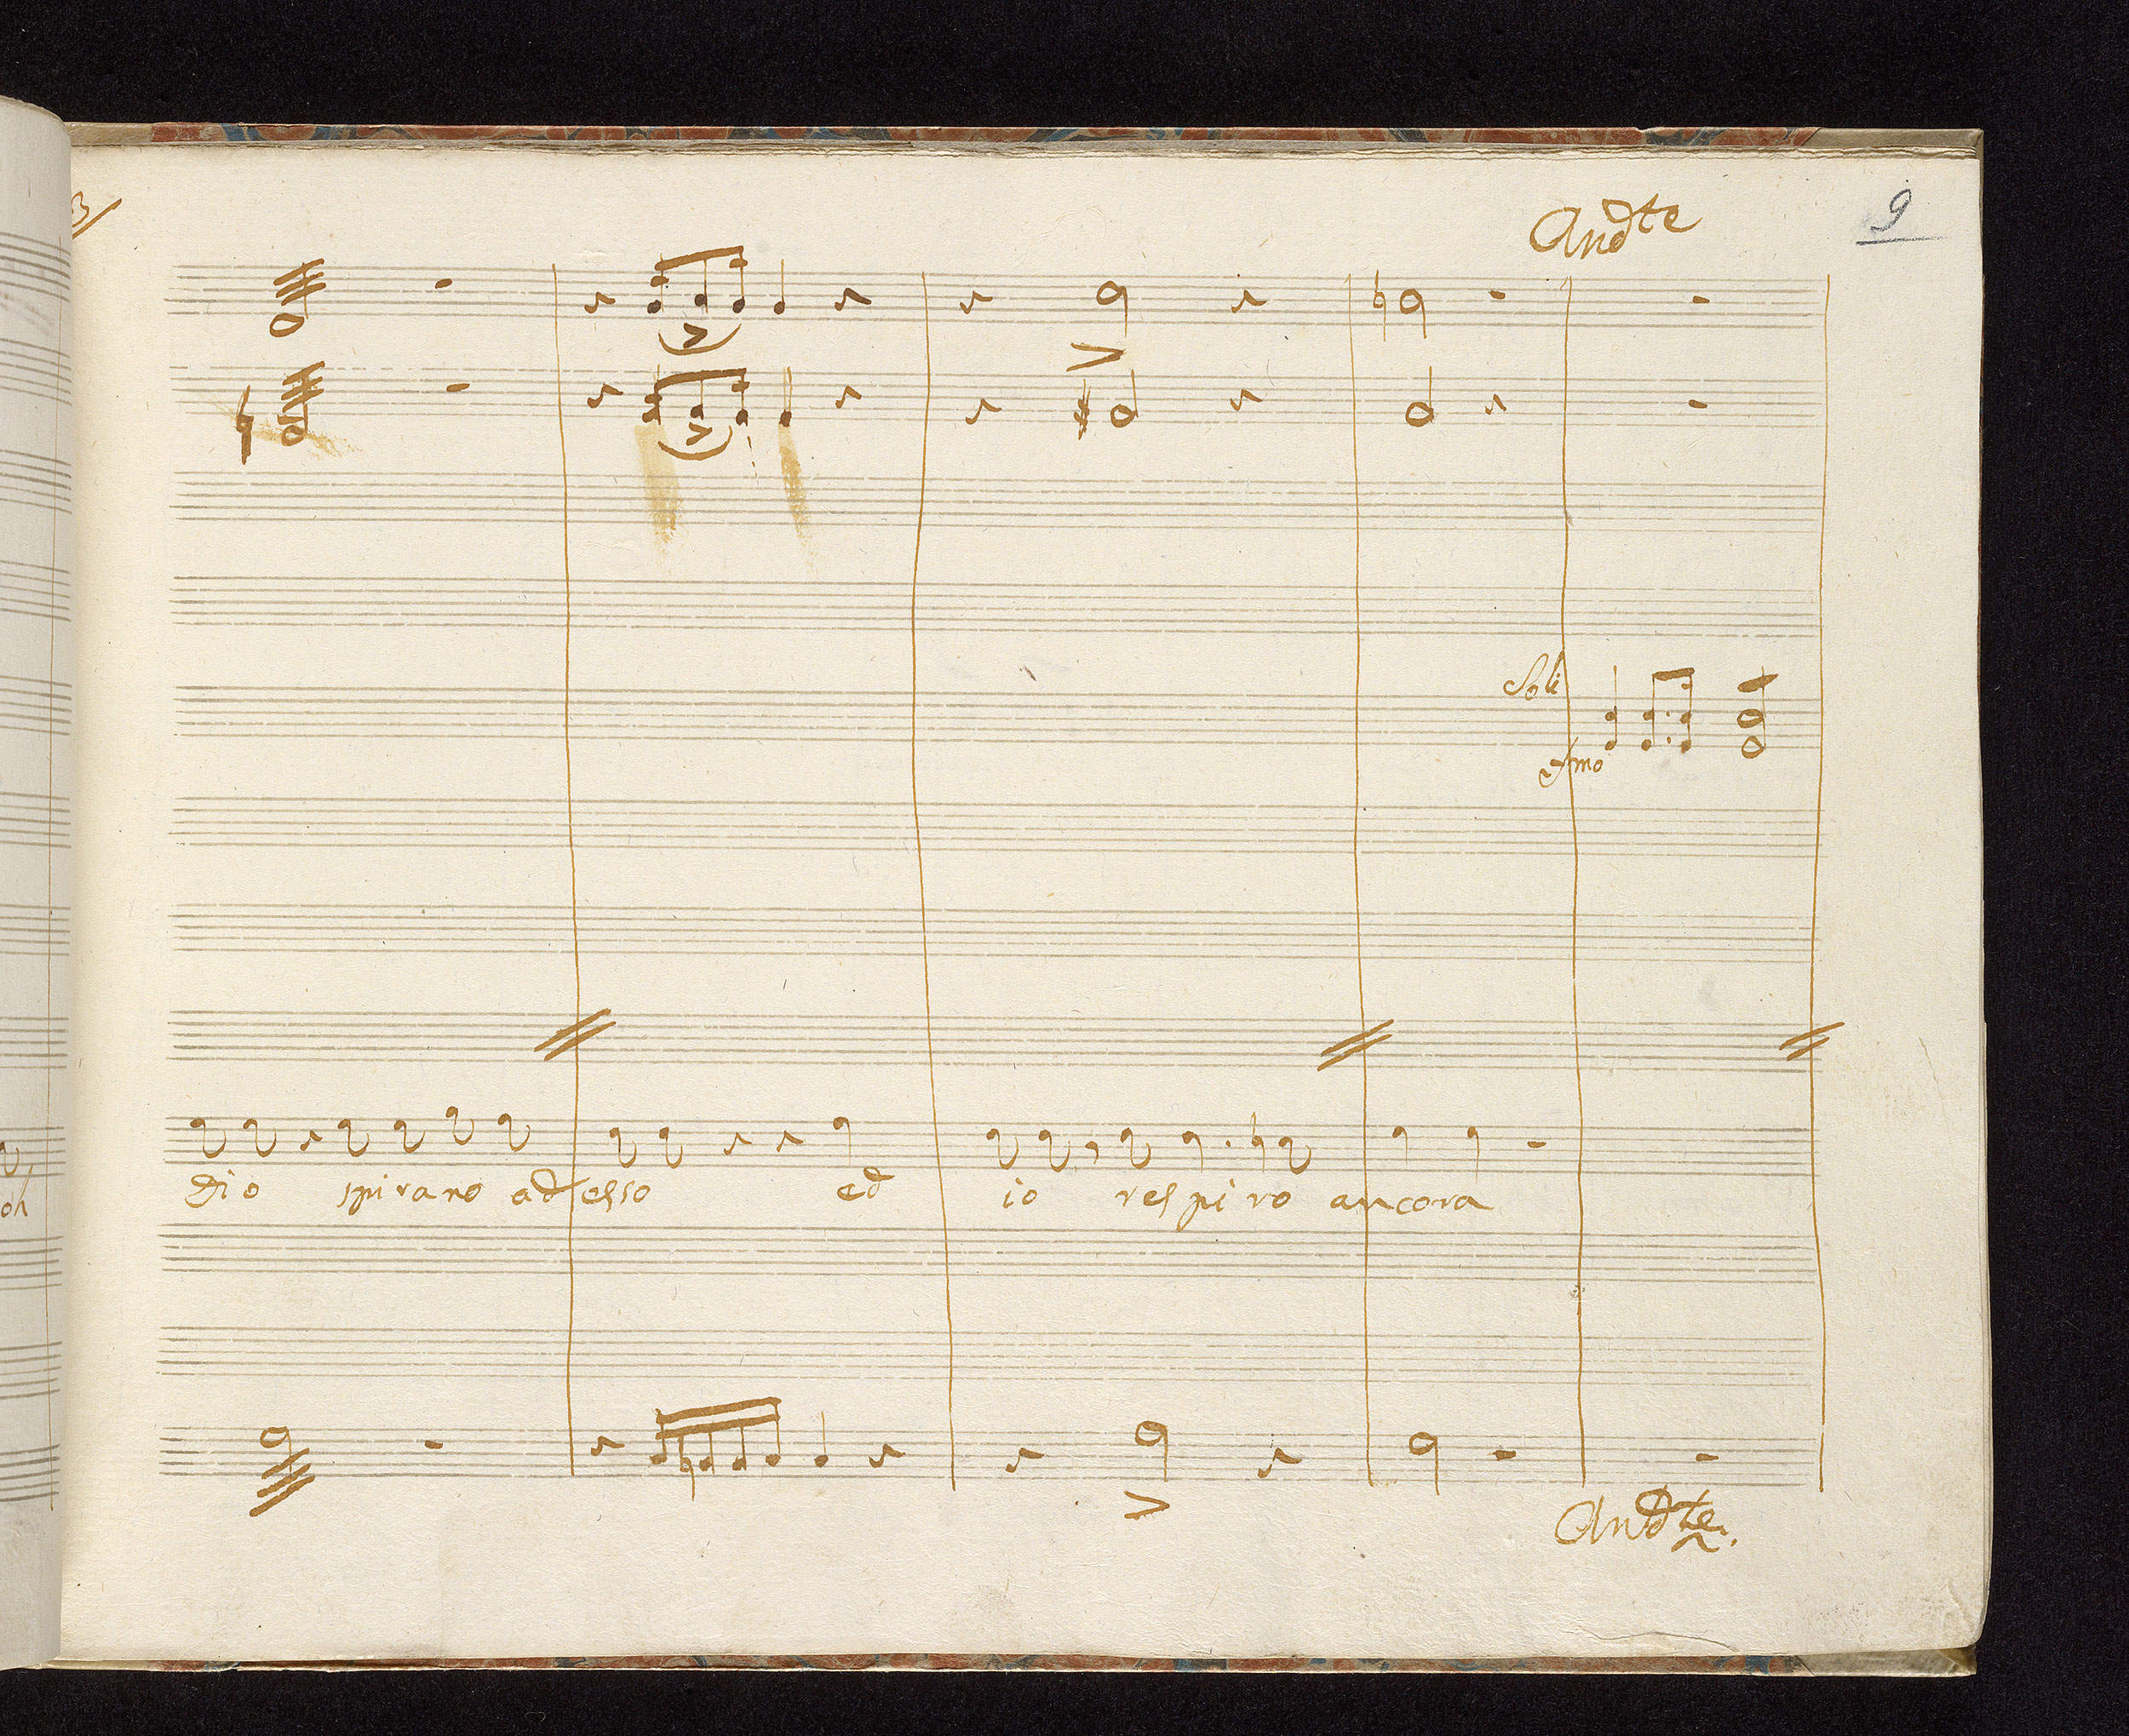 3/
Andte
9
Soli
fmo
oh
Dio spirano adesso ed io respiro ancora
Andte.